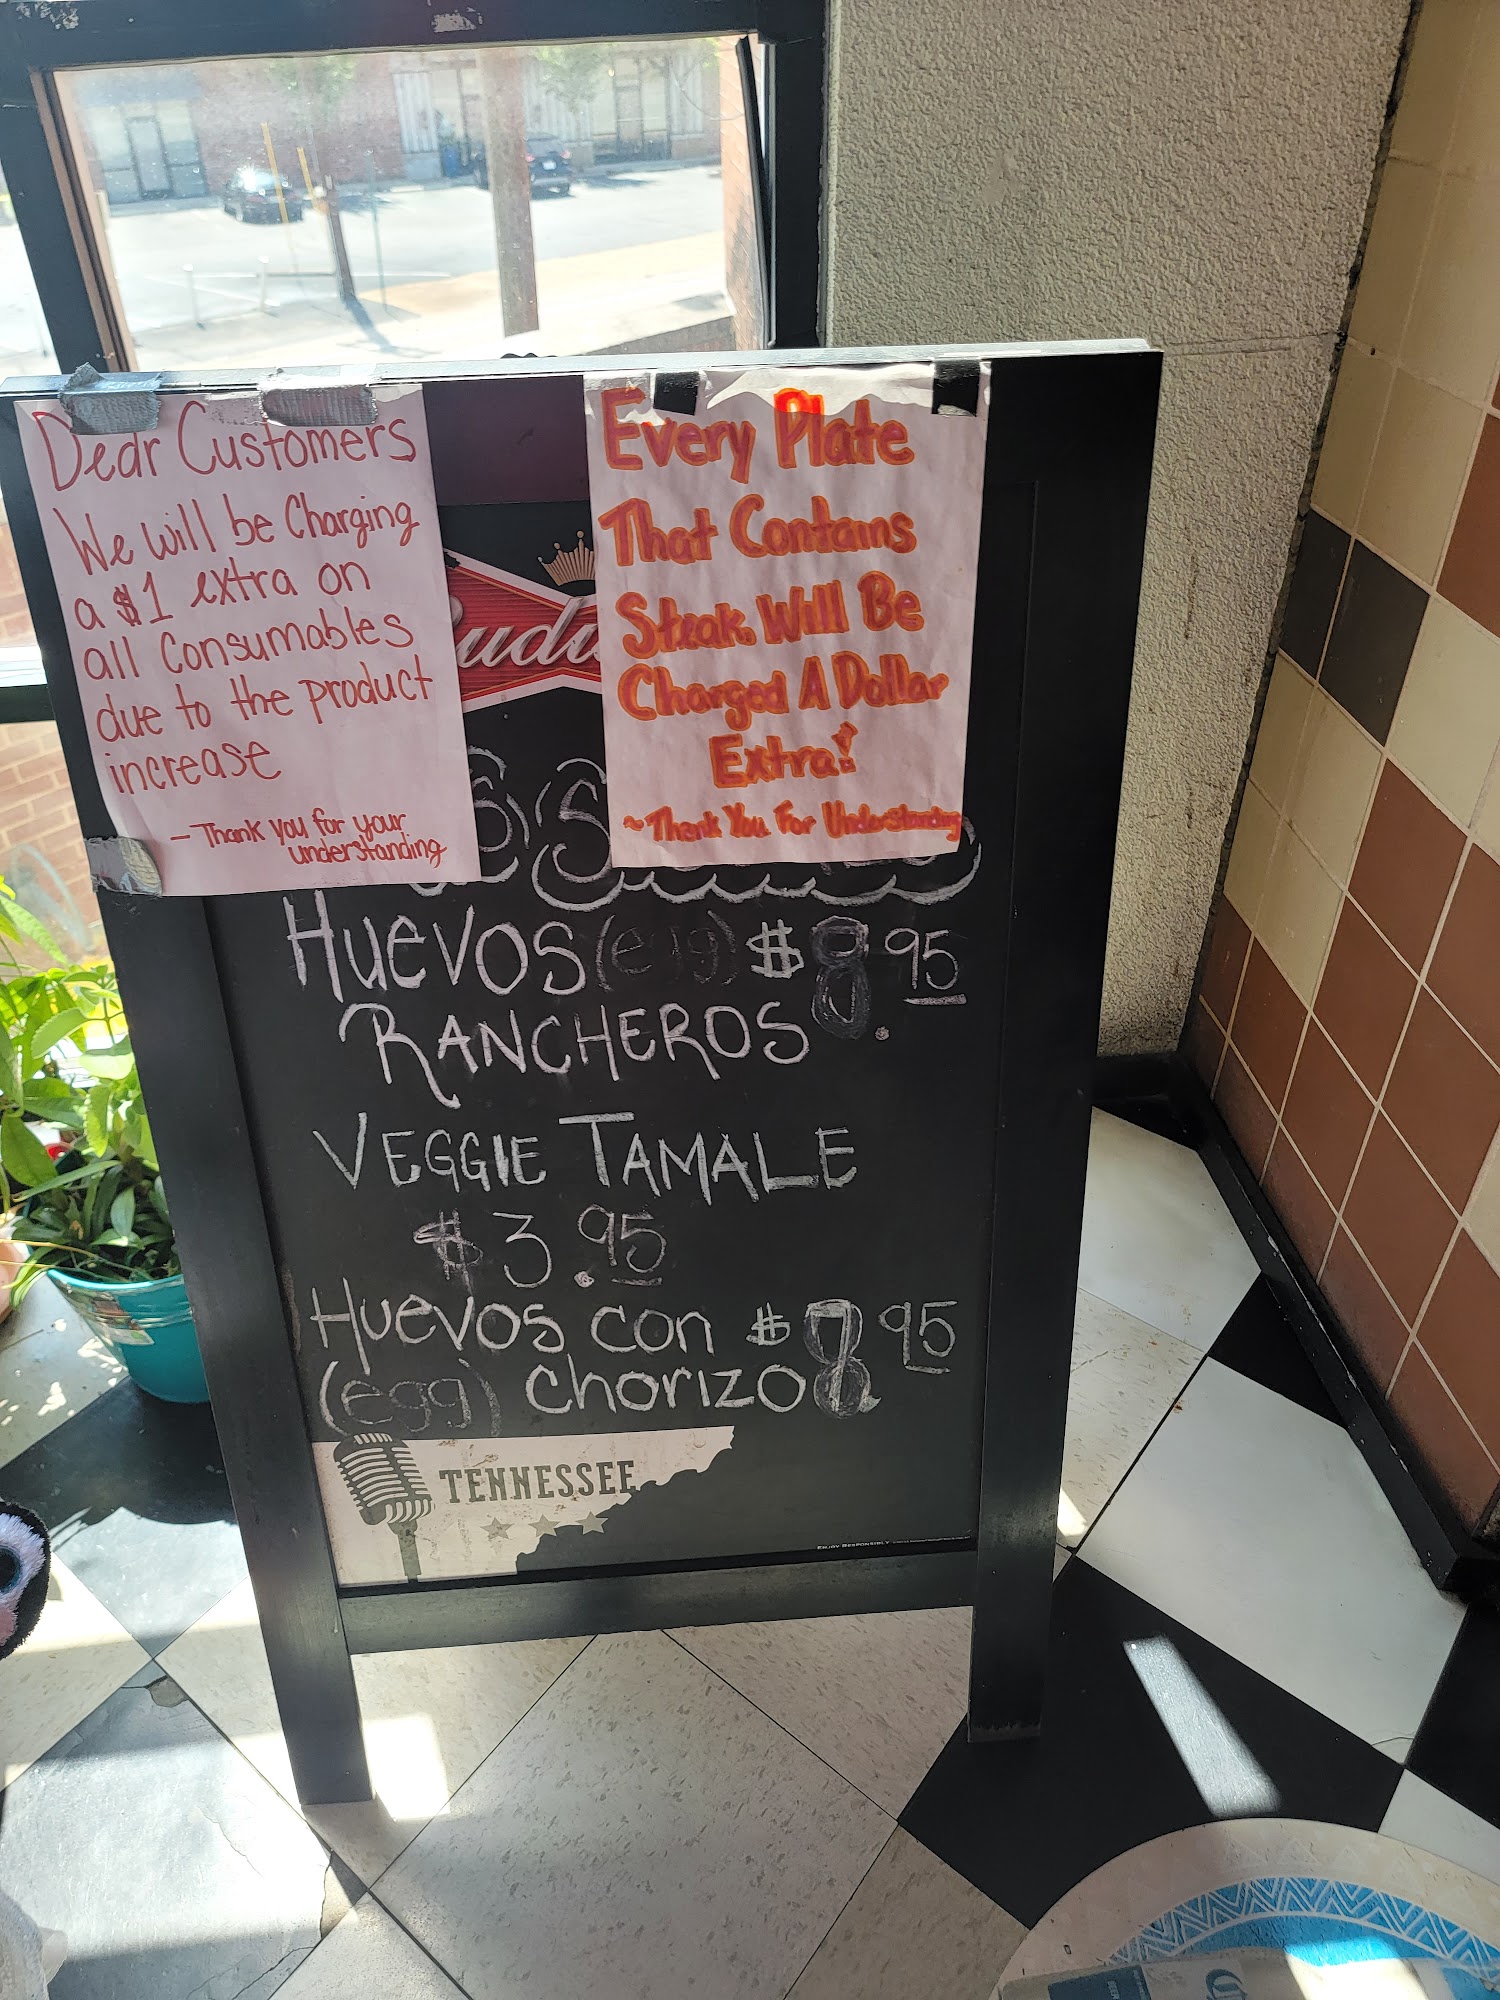 Dear Customers
We will be Charging
a $1 extra on
all Consumables
due to the product
increase
- Thank you for your
understanding
Every Plate
That Contains
Steak Will Be
Charged A Dollar
Extra!
~ Thank You For Understanding
Budw
HUEVOS (egg) $8.95
RANCHEROS
VEGGIE TAMALE
$3.95
HUEVOS CON $8.95
(egg) CHORIZO
TENNESSEE
ENJOY RESPONSIBLY